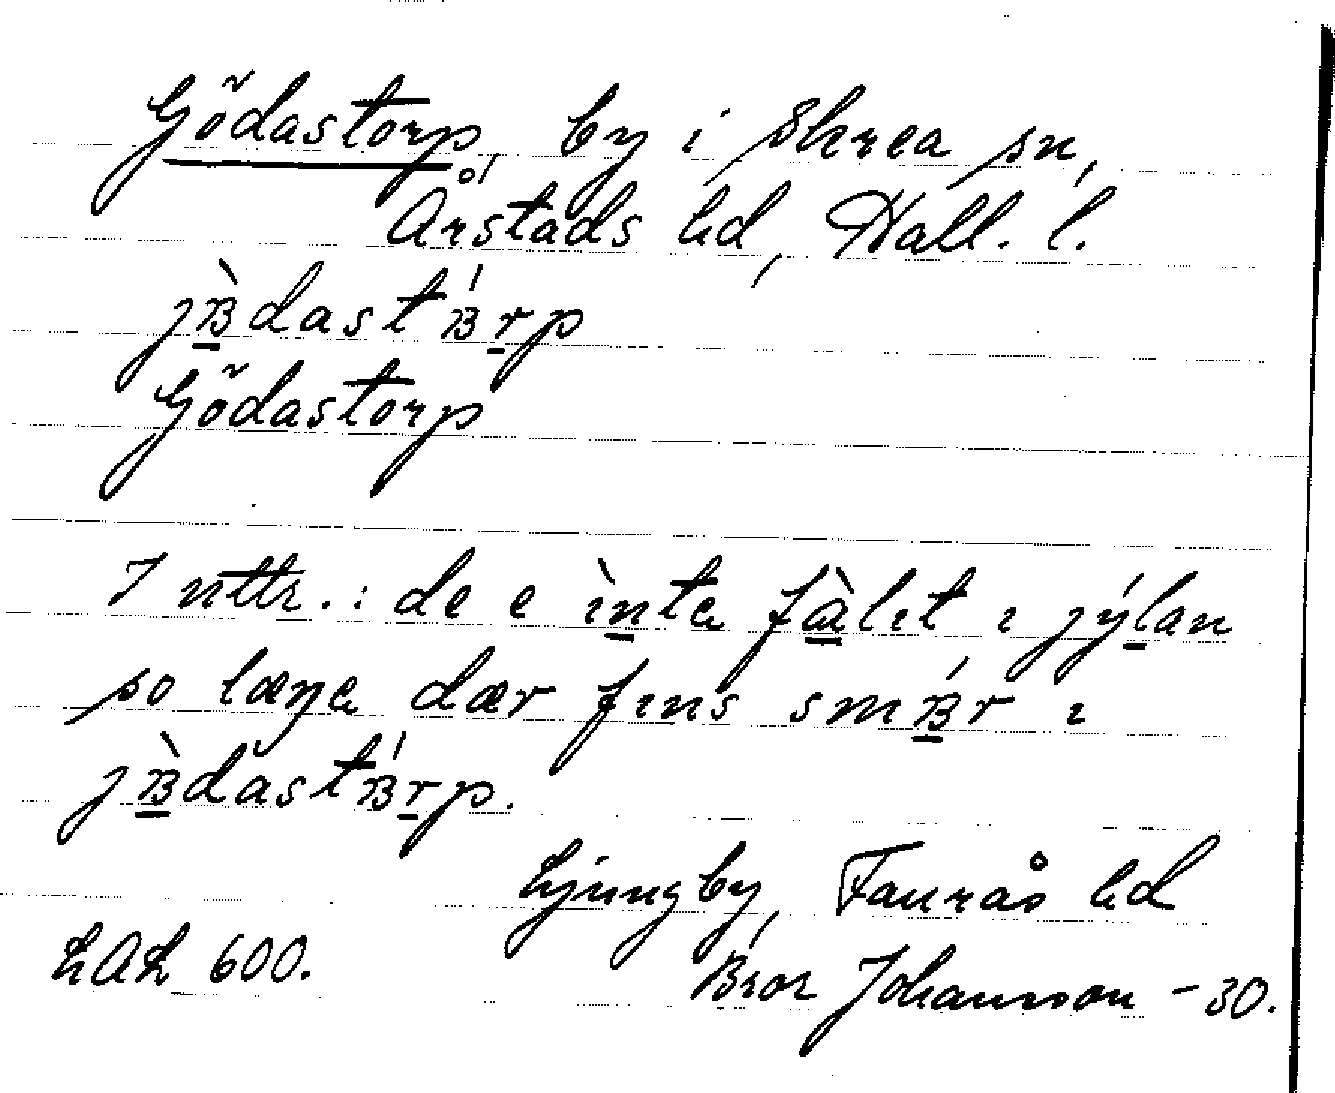 Gödastorp, by i Skrea sn,
Årstads hd, Hall. l.
jɞ̀dastɞ́rp
Gödastorp
I uttr.: de e ìnta fàlıt ı jýlan
so læŋa dær fıns smɞ́r ı
jɞ̀dastɞ́rp.
Ljungby, Faurås hd
LAL 600. Bror Johansson -30.